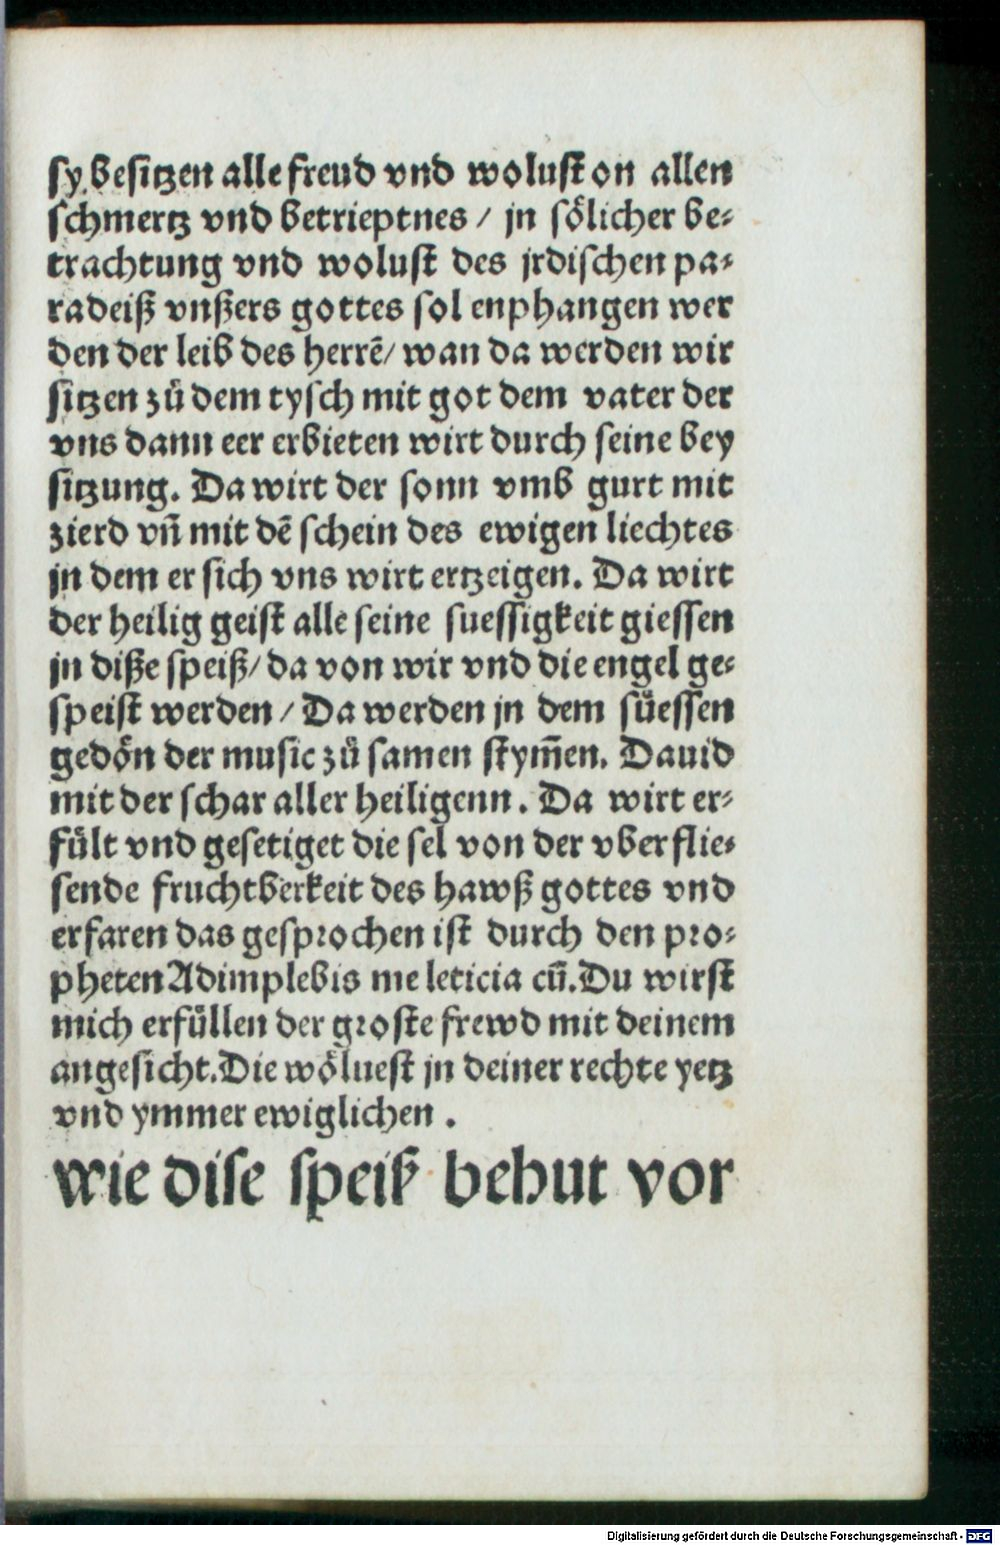 sy besitzen alle freud vnd wolust on allen
schmertz vnd betrieptnes / jn sölicher be⸗
trachtung vnd wolust des jrdischen pa⸗
radeiß vnßers gottes sol enphangen wer
den der leib des herrē/ wan da werden wir
sitzen zů dem tysch mit got dem vater der
vns dann eer erbieten wirt durch seine bey
sitzung. Da wirt der sonn vmb gurt mit
zierd vn̄ mit dē schein des ewigen liechtes
jn dem er sich vns wirt ertzeigen. Da wirt
der heilig geist alle seine suessigkeit giessen
jn diße speiß/ da von wir vnd die engel ge⸗
speist werden / Da werden jn dem süessen
gedön der music zů samen stym̄en. Dauid
mit der schar aller heiligenn. Da wirt er⸗
fült vnd gesetiget die sel von der vberflie⸗
sende fruchtberkeit des hawß gottes vnd
erfaren das gesprochen ist durch den pro⸗
pheten Adimplebis me leticia cū. Du wirst
mich erfüllen der groste frewd mit deinem
angesicht. Die wöluest jn deiner rechte yetz
vnd ymmer ewiglichen.
wie dise speiß behut vor
Digitalisierung gefördert durch die Deutsche Forschungsgemeinschaft - DFG